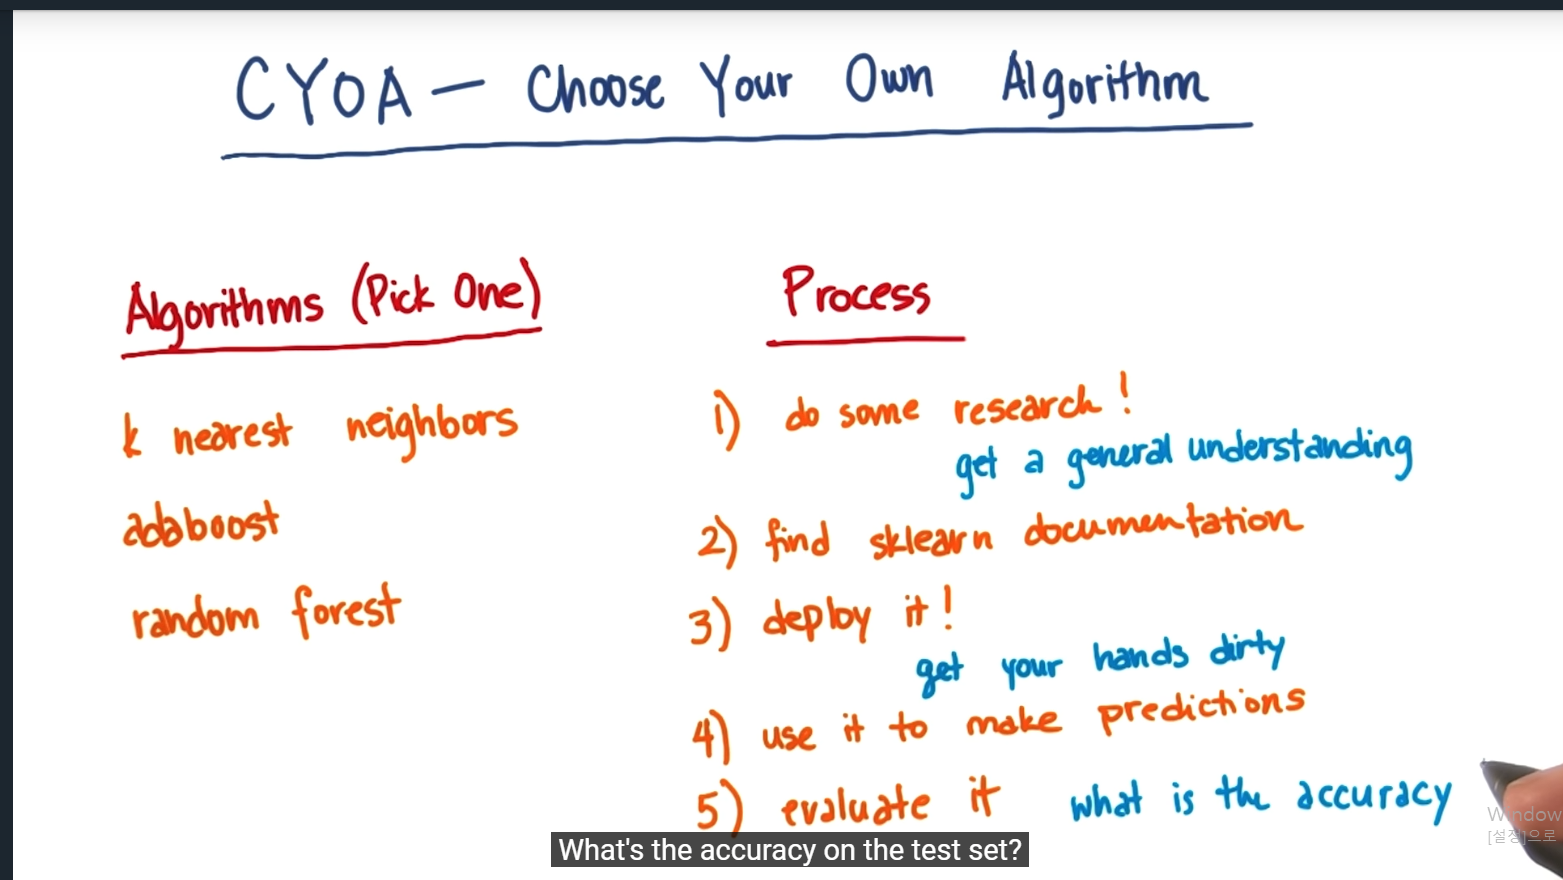 CYOA – Choose Your Own Algorithm
Algorithms (Pick One)
k nearest neighbors
adaboost
random forest
Process
1) do some research!
get a general understanding
2) find sklearn documentation
3) deploy it!
get your hands dirty
4) use it to make predictions
5) evaluate it what is the accuracy
What's the accuracy on the test set?
Window
[설정]으로